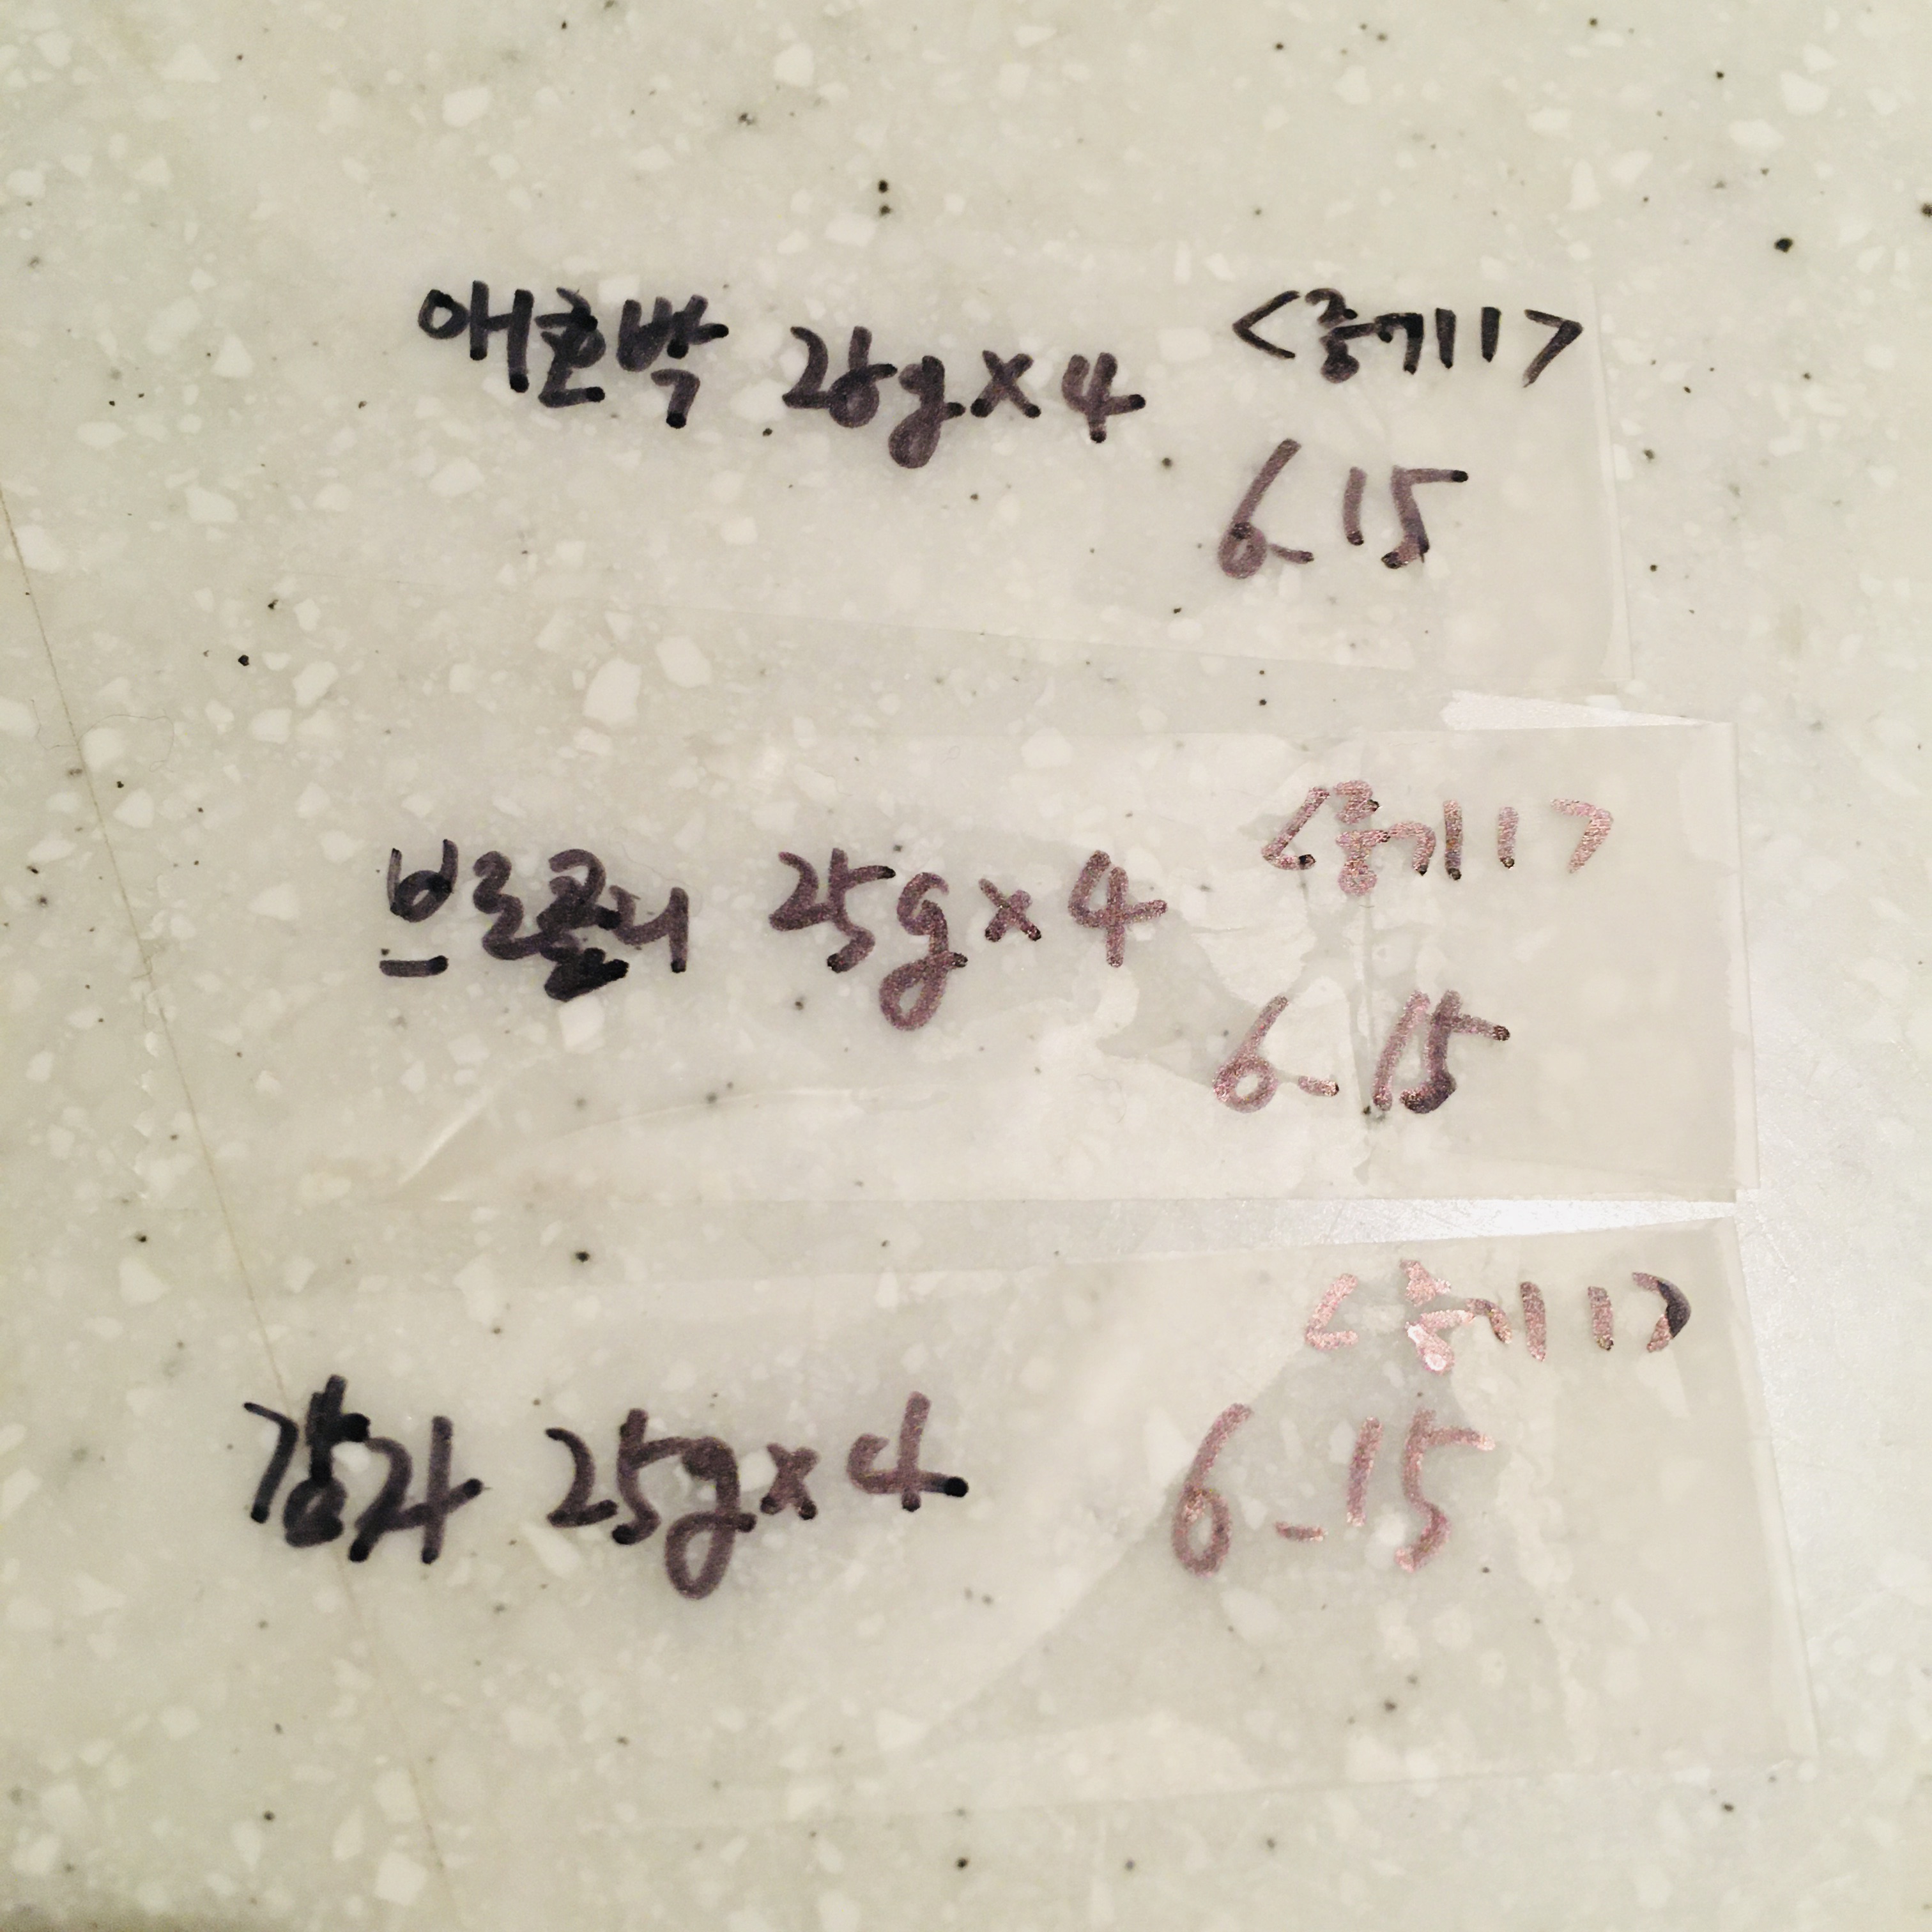 애호박 25g x 4 <중기1>
6-15
브로콜리 25g x 4 <중기1>
6-15
감자 25g x 4 <중기1>
6-15